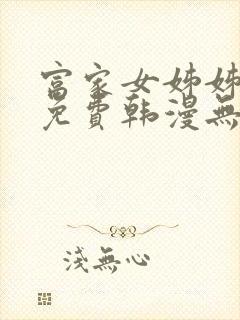 富家女姊姊
免費韩漫無
淺無心